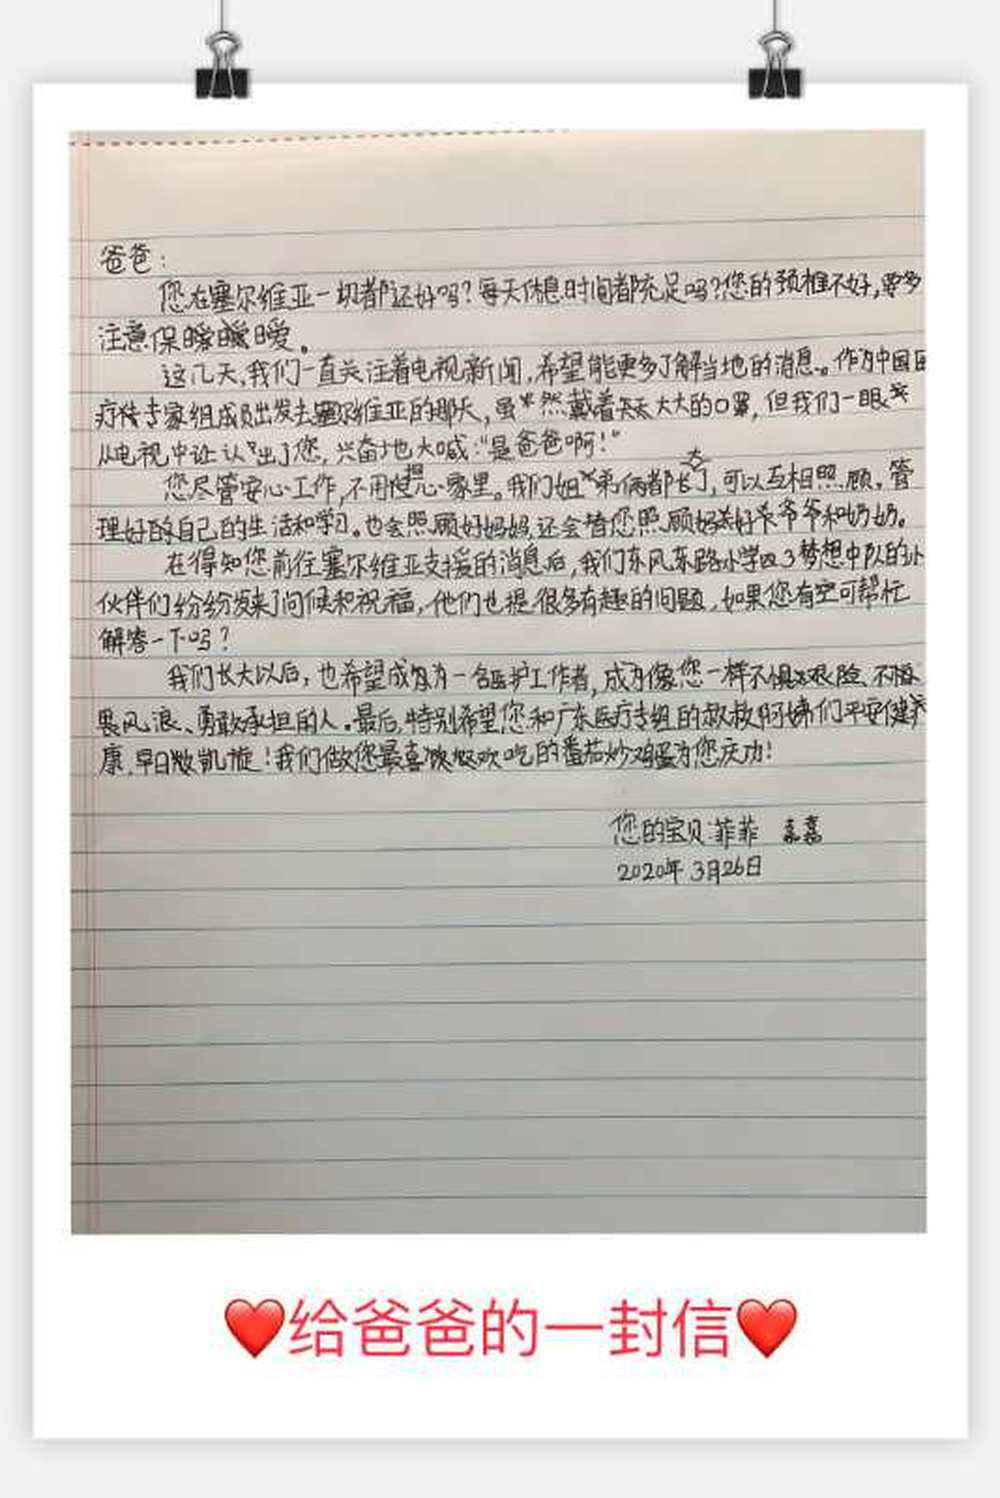 爸爸：
您在塞尔维亚一切都还好吗？每天休息时间都充足吗？您的颈椎不好，要多
注意保暖。
这几天，我们一直关注着电视新闻，希望能更多了解当地的消息。作为中国医
疗专家组成员出发去塞尔维亚的那天，虽然戴着大大的口罩，但我们一眼
从电视中认出了您，兴奋地大喊："是爸爸啊！"
您尽管安心工作，不用担心家里。我们姐弟俩都长大了，可以互相照顾。管
理好自己的生活和学习。也会照顾好妈妈，还会替您照顾好爷爷和奶奶。
在得知您前往塞尔维亚支援的消息后，我们东风东路小学四3梦想中队的小
伙伴们纷纷发来了问候和祝福，他们也提很多有趣的问题，如果您有空可帮忙
解答一下吗？
我们长大以后，也希望成为一名医护工作者，成为像您一样不惧艰险、不惧
畏风浪、勇敢承担的人。最后，特别希望您和广东医疗专组的叔叔阿姨们平安健
康，早日凯旋！我们做您最喜欢吃的番茄炒鸡蛋为您庆功！
您的宝贝：菲菲 嘉嘉
2020年3月26日
❤️给爸爸的一封信❤️